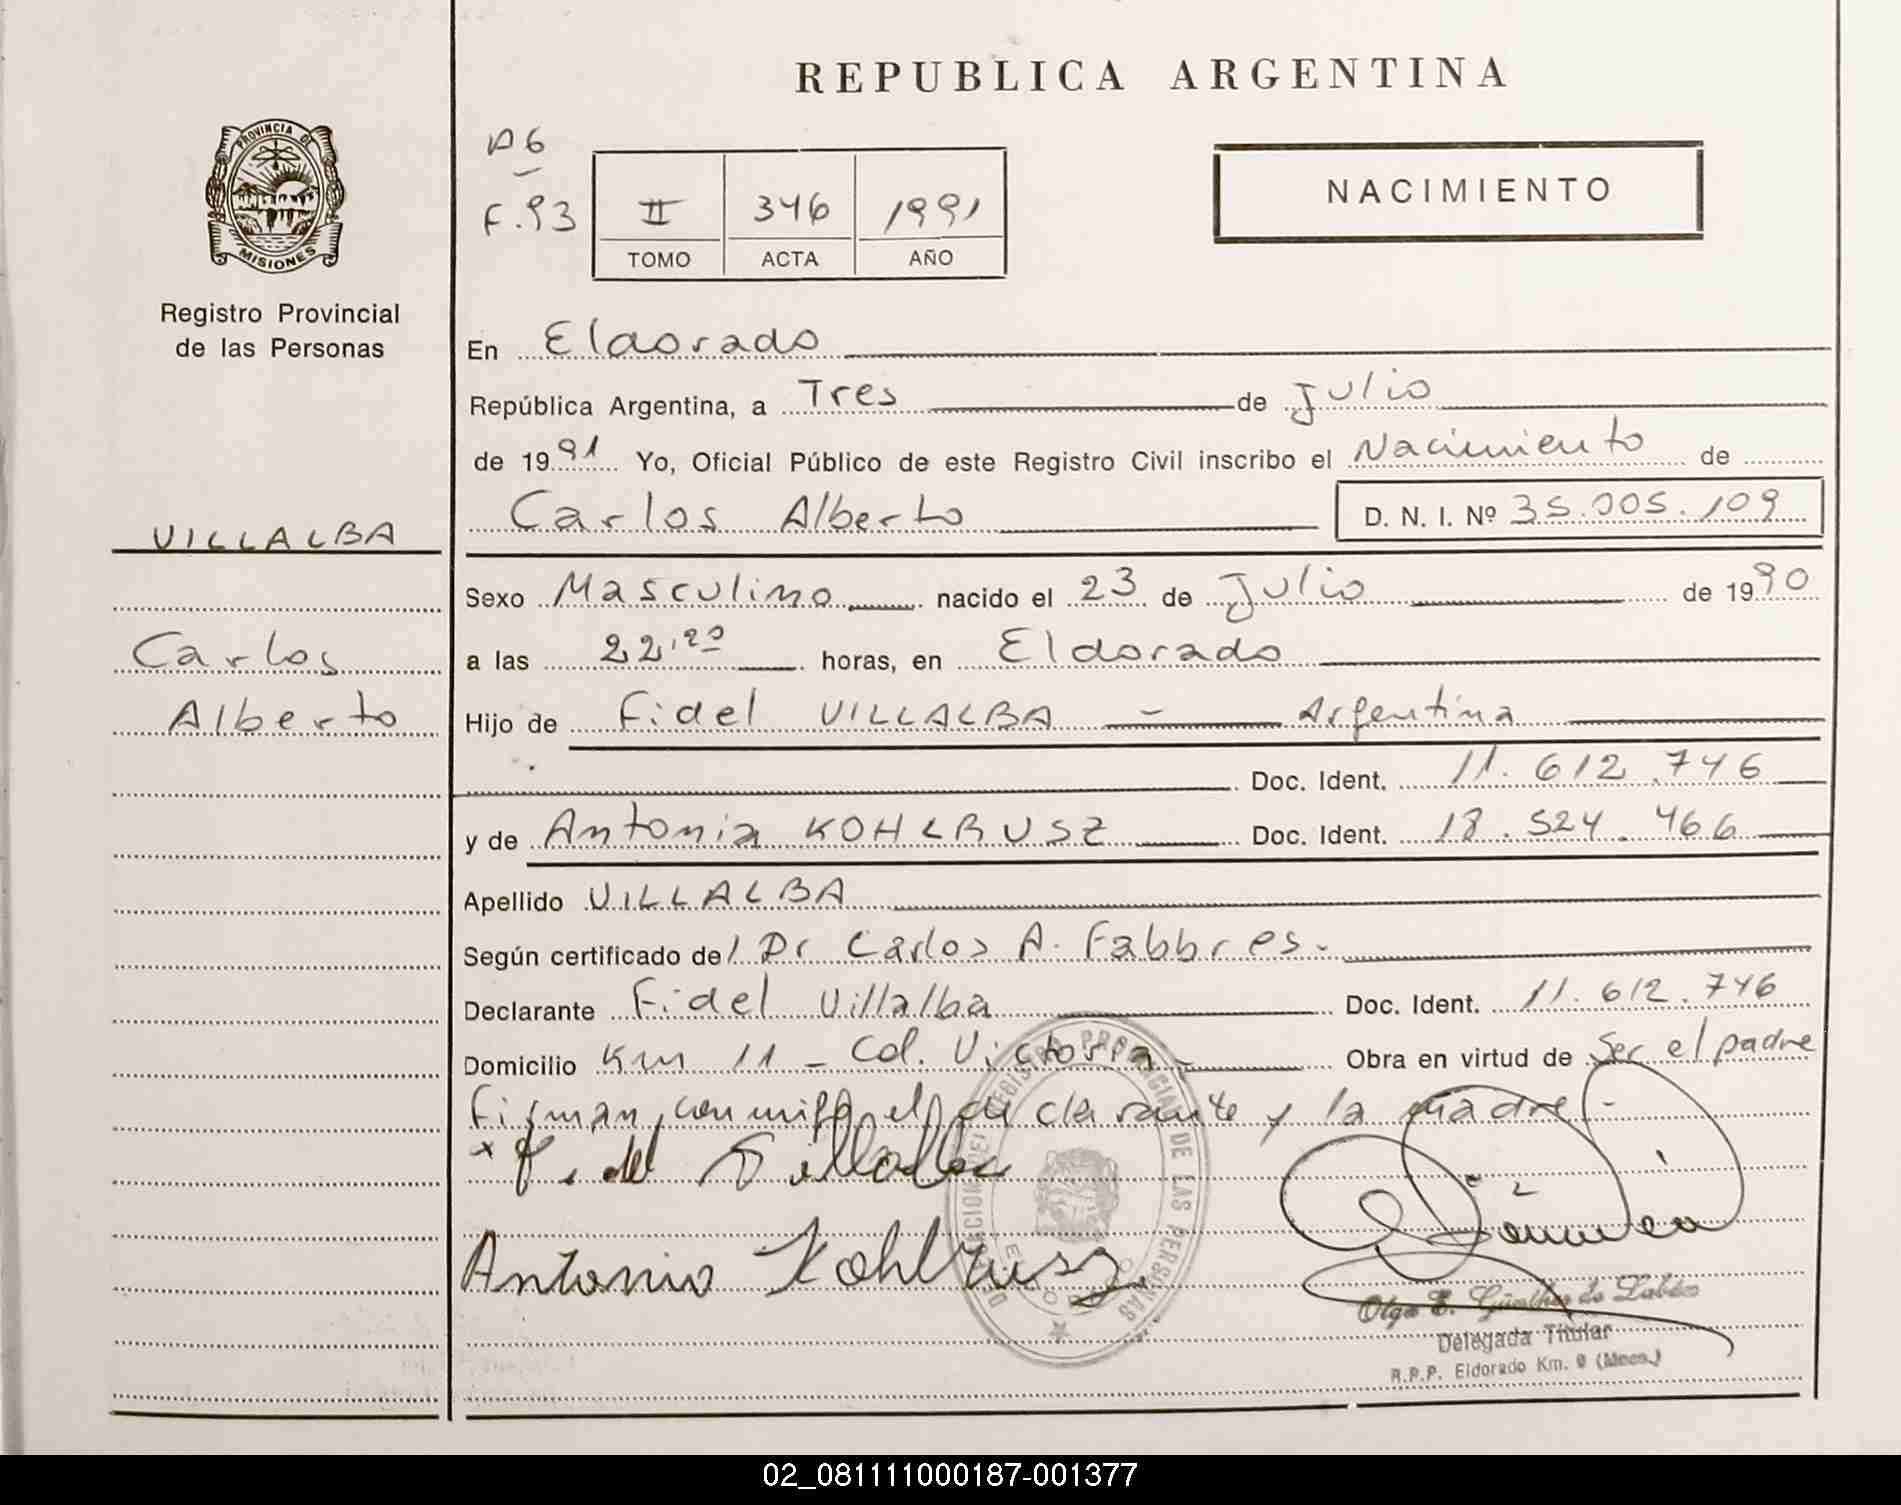 REPUBLICA ARGENTINA
PROVINCIA DE
MISIONES
Registro Provincial
de las Personas
A6
F.93
II 346 1991
TOMO ACTA AÑO
NACIMIENTO
En Eldorado
República Argentina, a Tres de Julio
de 1991 Yo, Oficial Público de este Registro Civil inscribo el Nacimiento de
Carlos Alberto D. N. I. Nº 35.005.109
VILLALBA
Carlos
Alberto
Sexo Masculino nacido el 23 de Julio de 1990
a las 22,20 horas, en Eldorado
Hijo de Fidel VILLALBA - Argentina
Doc. Ident. 11.612.746
y de Antonia KOHLRUSZ Doc. Ident. 18.524.466
Apellido VILLALBA
Según certificado del Dr Carlos A. Fabbres.-
Declarante Fidel Villalba Doc. Ident. 11.612.746
Domicilio Km 11 - Col. Victoria - Obra en virtud de Ser el padre
Firman conmigo el declarante y la madre.-
x Fidel Villalba
Antonia Kohlrusz
DELEGACION DEL REGISTRO PROVINCIAL DE LAS PERSONAS
ELDORADO
Olga E. Günther de
Delegada Titular
R.P.P. Eldorado Km. 9 (Mnes.)
02_081111000187-001377